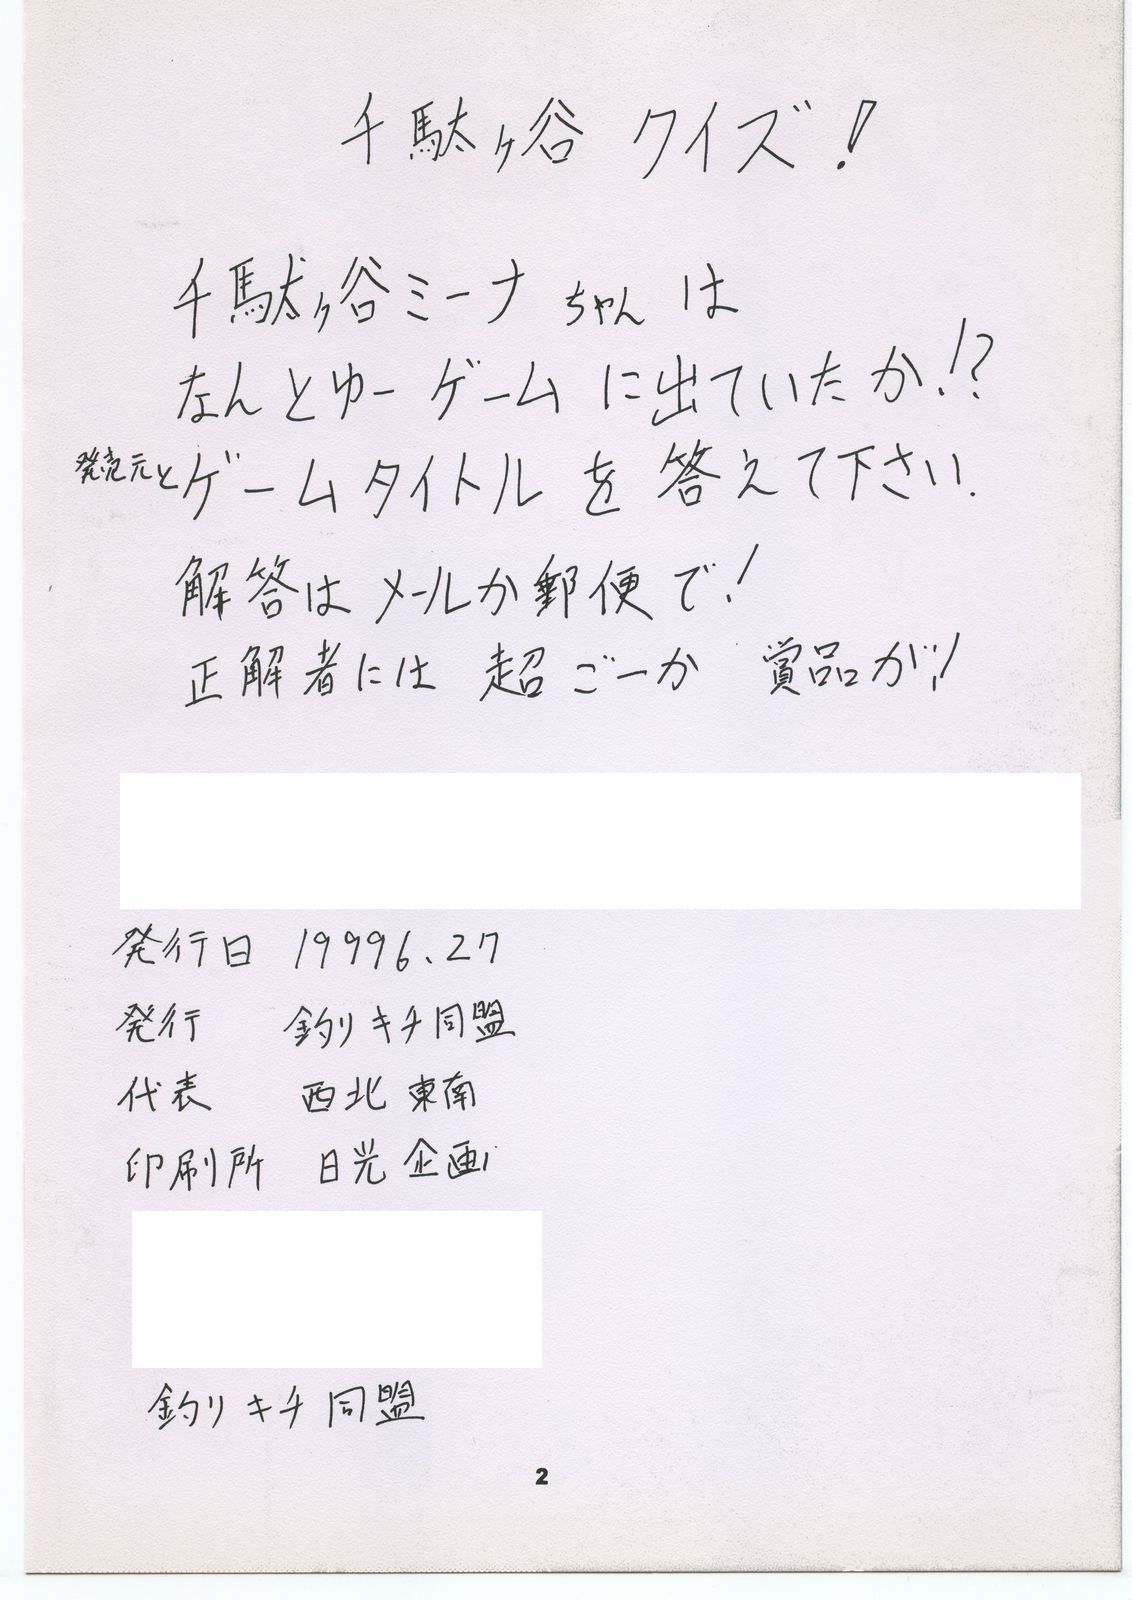 千駄ヶ谷 クイズ!
千駄ヶ谷ミーナちゃんは
なんとゆーゲームに出ていたか!?
発売元とゲームタイトルを答えて下さい.
解答はメールか郵便で!
正解者には 超ごーか 賞品が!
発行日 19996.27
発行 釣りキチ同盟
代表 西北東南
印刷所 日光企画
釣りキチ同盟
2